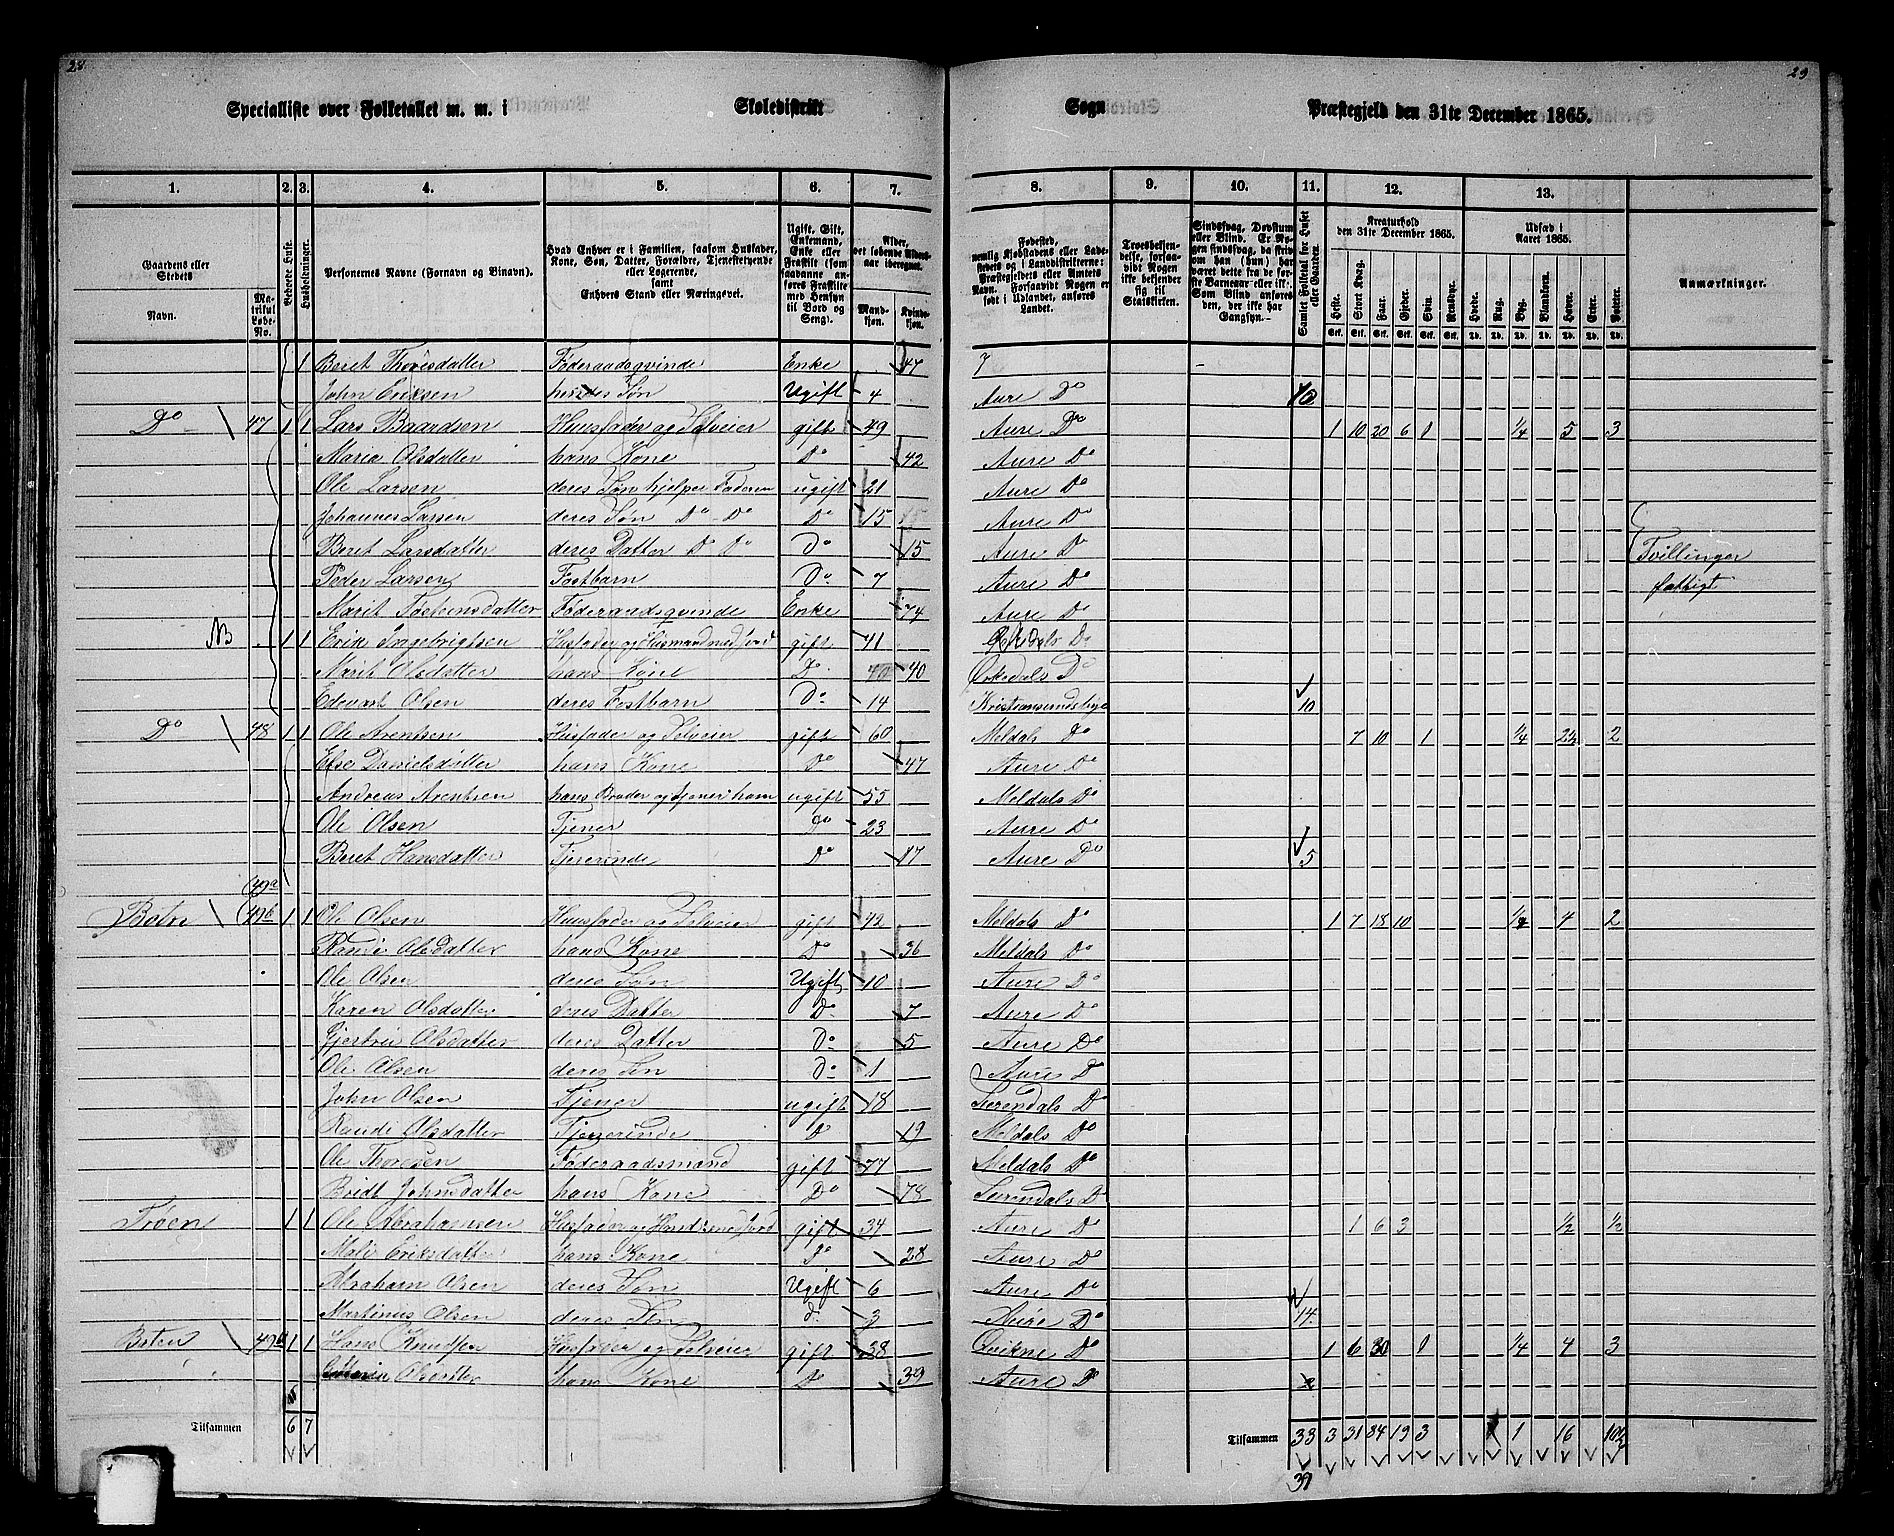 28
29
Specialliste over Folketallet m. m. i Skoledistrikt Sogn Præstegjeld den 31te December 1865.
1. 2. 3. 4. 5. 6. 7. 8. 9. 10. 11. 12. 13.
Gaardens eller Stedets Navn. Matrikul Løbe-No. Beboede Huse. Husholdninger. Personernes Navne (Fornavn og Binavn). Hvad Enhver er i Familien, saasom Husfader, Kone, Søn, Datter, Forældre, Tjenestetyende eller Logerende, samt Enhvers Stand eller Næringsvei. Ugift, Gift, Enkemand, Enke eller Fraskilt (som saadanne anføres Fraskilte med Hensyn til Bord og Seng). Alder, det løbende Aldersaar iberegnet. Mandkjøn. Kvindekjøn.
Fødested, nemlig Kjøbstadens eller Ladestedets og i Landdistrikterne: Præstegjeldets eller Amtets Navn. Forsaavidt Nogen er født i Udlandet, anføres Landet. Troesbekjendelse, forsaavidt Nogen ikke bekjender sig til Statskirken. Sindssvag, Døvstum eller Blind. Er Nogen sindssvag, da skrives om han (hun) har været dette fra de første Barneaar eller ikke. Som Blind anføres den, der ikke har Gangsyn. Samlet Folketal for Huset eller Gaarden. Kreaturhold den 31te December 1865. Udsæd i Aaret 1865. Anmærkninger.
Heste. Stort Kvæg. Faar. Gjeder. Svin. Rensdyr. Hvede. Rug. Byg. Blandkorn. Havre. Erter. Poteter.
1 Beret Thoresdatter Føderaadsqvinde Enke 47 7
John Eriksen hendes Søn Ugift 4 Aure Do 10
Do 47 1 1 Lars Baardsen Huusfader og Selveier gift 49 Aure Do 1 10 20 6 1 1/4 5 3
Maria Olsdatter hans Kone Do 42 Aure Do
Ole Larsen deres Søn hjelper Faderen ugift 21 Aure Do
Johannes Larsen deres Søn Do Do Do 15 Aure Do
Beret Larsdatter deres Datter Do Do Do 15 Aure Do Tvillinger
Peder Larsen Fostbarn Do 7 Aure Do fattigt
Marit Tosteinsdatter Føderaadsqvinde Enke 74 Aure Do
NB 1 1 Erik Ingebrigtsen Husfader og Husmand med Jord gift 41 Do
Marit Olsdatter hans Kone Do 40 Ørkedals Do
Edevart Olsen deres Fostbarn Do 14 Kristiansunds bye 10
Do 48 1 1 Ole Arentsen Husfader og Selveier gift 60 Meldals Do 7 10 1 1/4 2 1/2 2
Else Danielsdatter hans Kone Do 47 Aure Do
Andreas Arentsen hans Broder og tjener ham ugift 55 Meldals Do
Ole Olsen Tjener Do 23 Aure Do
Beret Hansdatter Tjenerinde Do 17 Aure Do 5
49a
Botn 49b 1 1 Ole Olsen Huusfader og Selveier gift 42 Meldals Do 1 7 18 10 1/4 4 2
Randi Olsdatter hans Kone Do 36 Meldals Do
Ole Olsen deres Søn Ugift 10 Aure Do
Karen Olsdatter deres Datter Do 7 Aure Do
Gjertru Olsdatter deres Datter Do 5 Aure Do
Ole Olsen deres Søn Do 1 Aure Do
John Olsen Tjener ugift 18 Surendals Do
Randi Olsdatter Tjenerinde Do 19 Meldals Do
Ole Thoresen Føderaadsmand gift 77 Meldals Do
Bridt Johnsdatter hans Kone Do 78 Surendals Do
Trøen 1 1 Ole Abrahamsen Husfader og Husmd med Jord gift 34 Aure Do 1 6 3 1/2 1/2
Mali Eriksdatter hans Kone Do 28 Aure Do
Abraham Olsen deres Søn Ugift 6 Aure Do
Martinus Olsen deres Søn do 3 Aure Do 14
Boten 49a 1 1 Hans Knudsen Husfader og Selveier gift 38 Qvikne Do 1 6 30 1 1/4 4 3
Olsdatter hans Kone Do 39 Aure Do 2
Tilsammen 6 7
Tilsammen 33 3 31 84 19 3 1 16 10 1/2
39